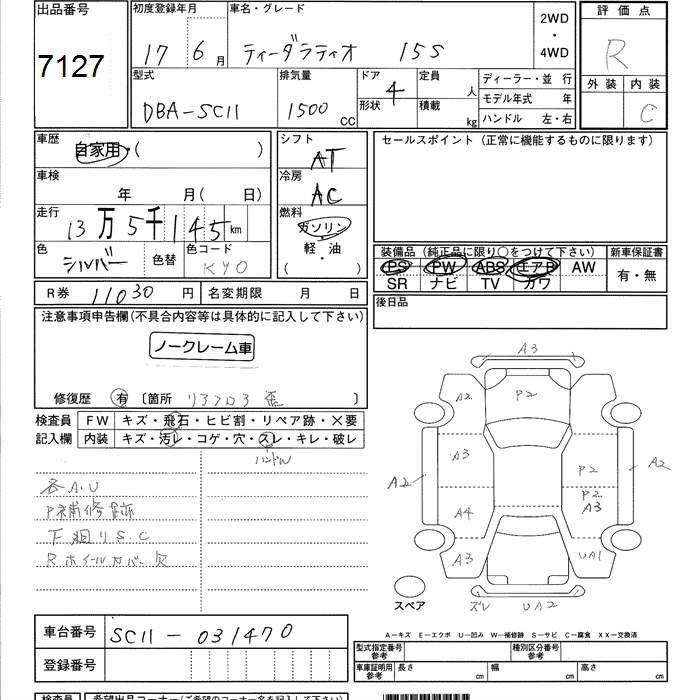 出品番号
7127
初度登録年月
17 6月
車名・グレード
ティーダラティオ 15S
2WD
・
4WD
評価点
R
外装 内装
C
型式
DBA-SC11
排気量
1500 CC
ドア
4
形状
定員
人
積載
kg
ディーラー・並 行
モデル年式 年
ハンドル 左・右
車歴
自家用・( )
車検
年 月( 日)
走行
13万5千145km
色
シルバー
色替
色コード
KY0
シフト
AT
冷房
AC
燃料
ガソリン
軽・油
( )
セールスポイント(正常に機能するものに限ります)
装備品(純正品に限り○をつけて下さい)
PS PW ABS エアB AW
SR ナビ TV カワ
新車保証書
有・無
R券 11030 円
名変期限 月 日
後日品
注意事項申告欄(不具合内容等は具体的に記入して下さい)
ノークレーム車
修復歴 有 〔箇所 リアフロア 〕
検査員
記入欄
FW キズ・飛石・ヒビ割・リペア跡・X要
内装 キズ・汚レ・コゲ・穴・スレ・キレ・破レ
ハンドル
各A.U
P補修跡
下廻りS.C
Rホイールカバー欠
A3
A2
P2
A3
P2
A2
A2
P2
A3
A4
A3
UA1
ズレ UA2
スペア
A－キズ E－エクボ U－凹み W－補修跡 S－サビ C－腐食 XX－交換済
車台番号 SC11-031470
登録番号
型式指定番号
参考
種別区分番号
参考
車庫証明用
参考
長さ cm 幅 cm 高さ cm
検査員
希望出品コーナー(ご希望のコーナー名を記入して下さい)